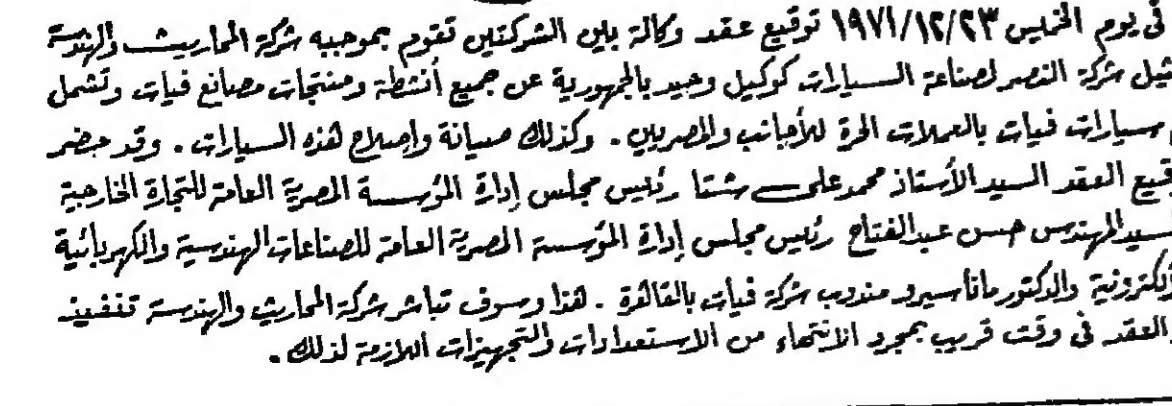 فى يوم الخميس ١٩٧١/١٢/٢٣ توقيع عقد وكالة بين الشركتين تقوم بموجبه شركة المحاريث والهندسة
ثيل شركة النصر لصناعة السيارات كوكيل وحيد بالجمهورية عن جميع أنشطة ومنتجات مصانع فيات وتشمل
سيارات فيات بالعملات الحرة للأجانب والمصريين . وكذلك صيانة وإصلاح هذه السيارات . وقد حضر
قيع العقد السيد الأستاذ محمد على شتا رئيس مجلس إدارة المؤسسة المصرية العامة للتجارة الخارجية
سيد المهندس حسن عبدالفتاح رئيس مجلس إدارة المؤسسة المصرية العامة للصناعات الهندسية والكهربائية
لكترونية والدكتور ماناسيرو مندوب شركة فيات بالقاهرة . هذا وسوف تباشر شركة المحاريث والهندسة تنفيذ
العقد فى وقت قريب بمجرد الانتهاء من الاستعدادات والتجهيزات اللازمة لذلك .